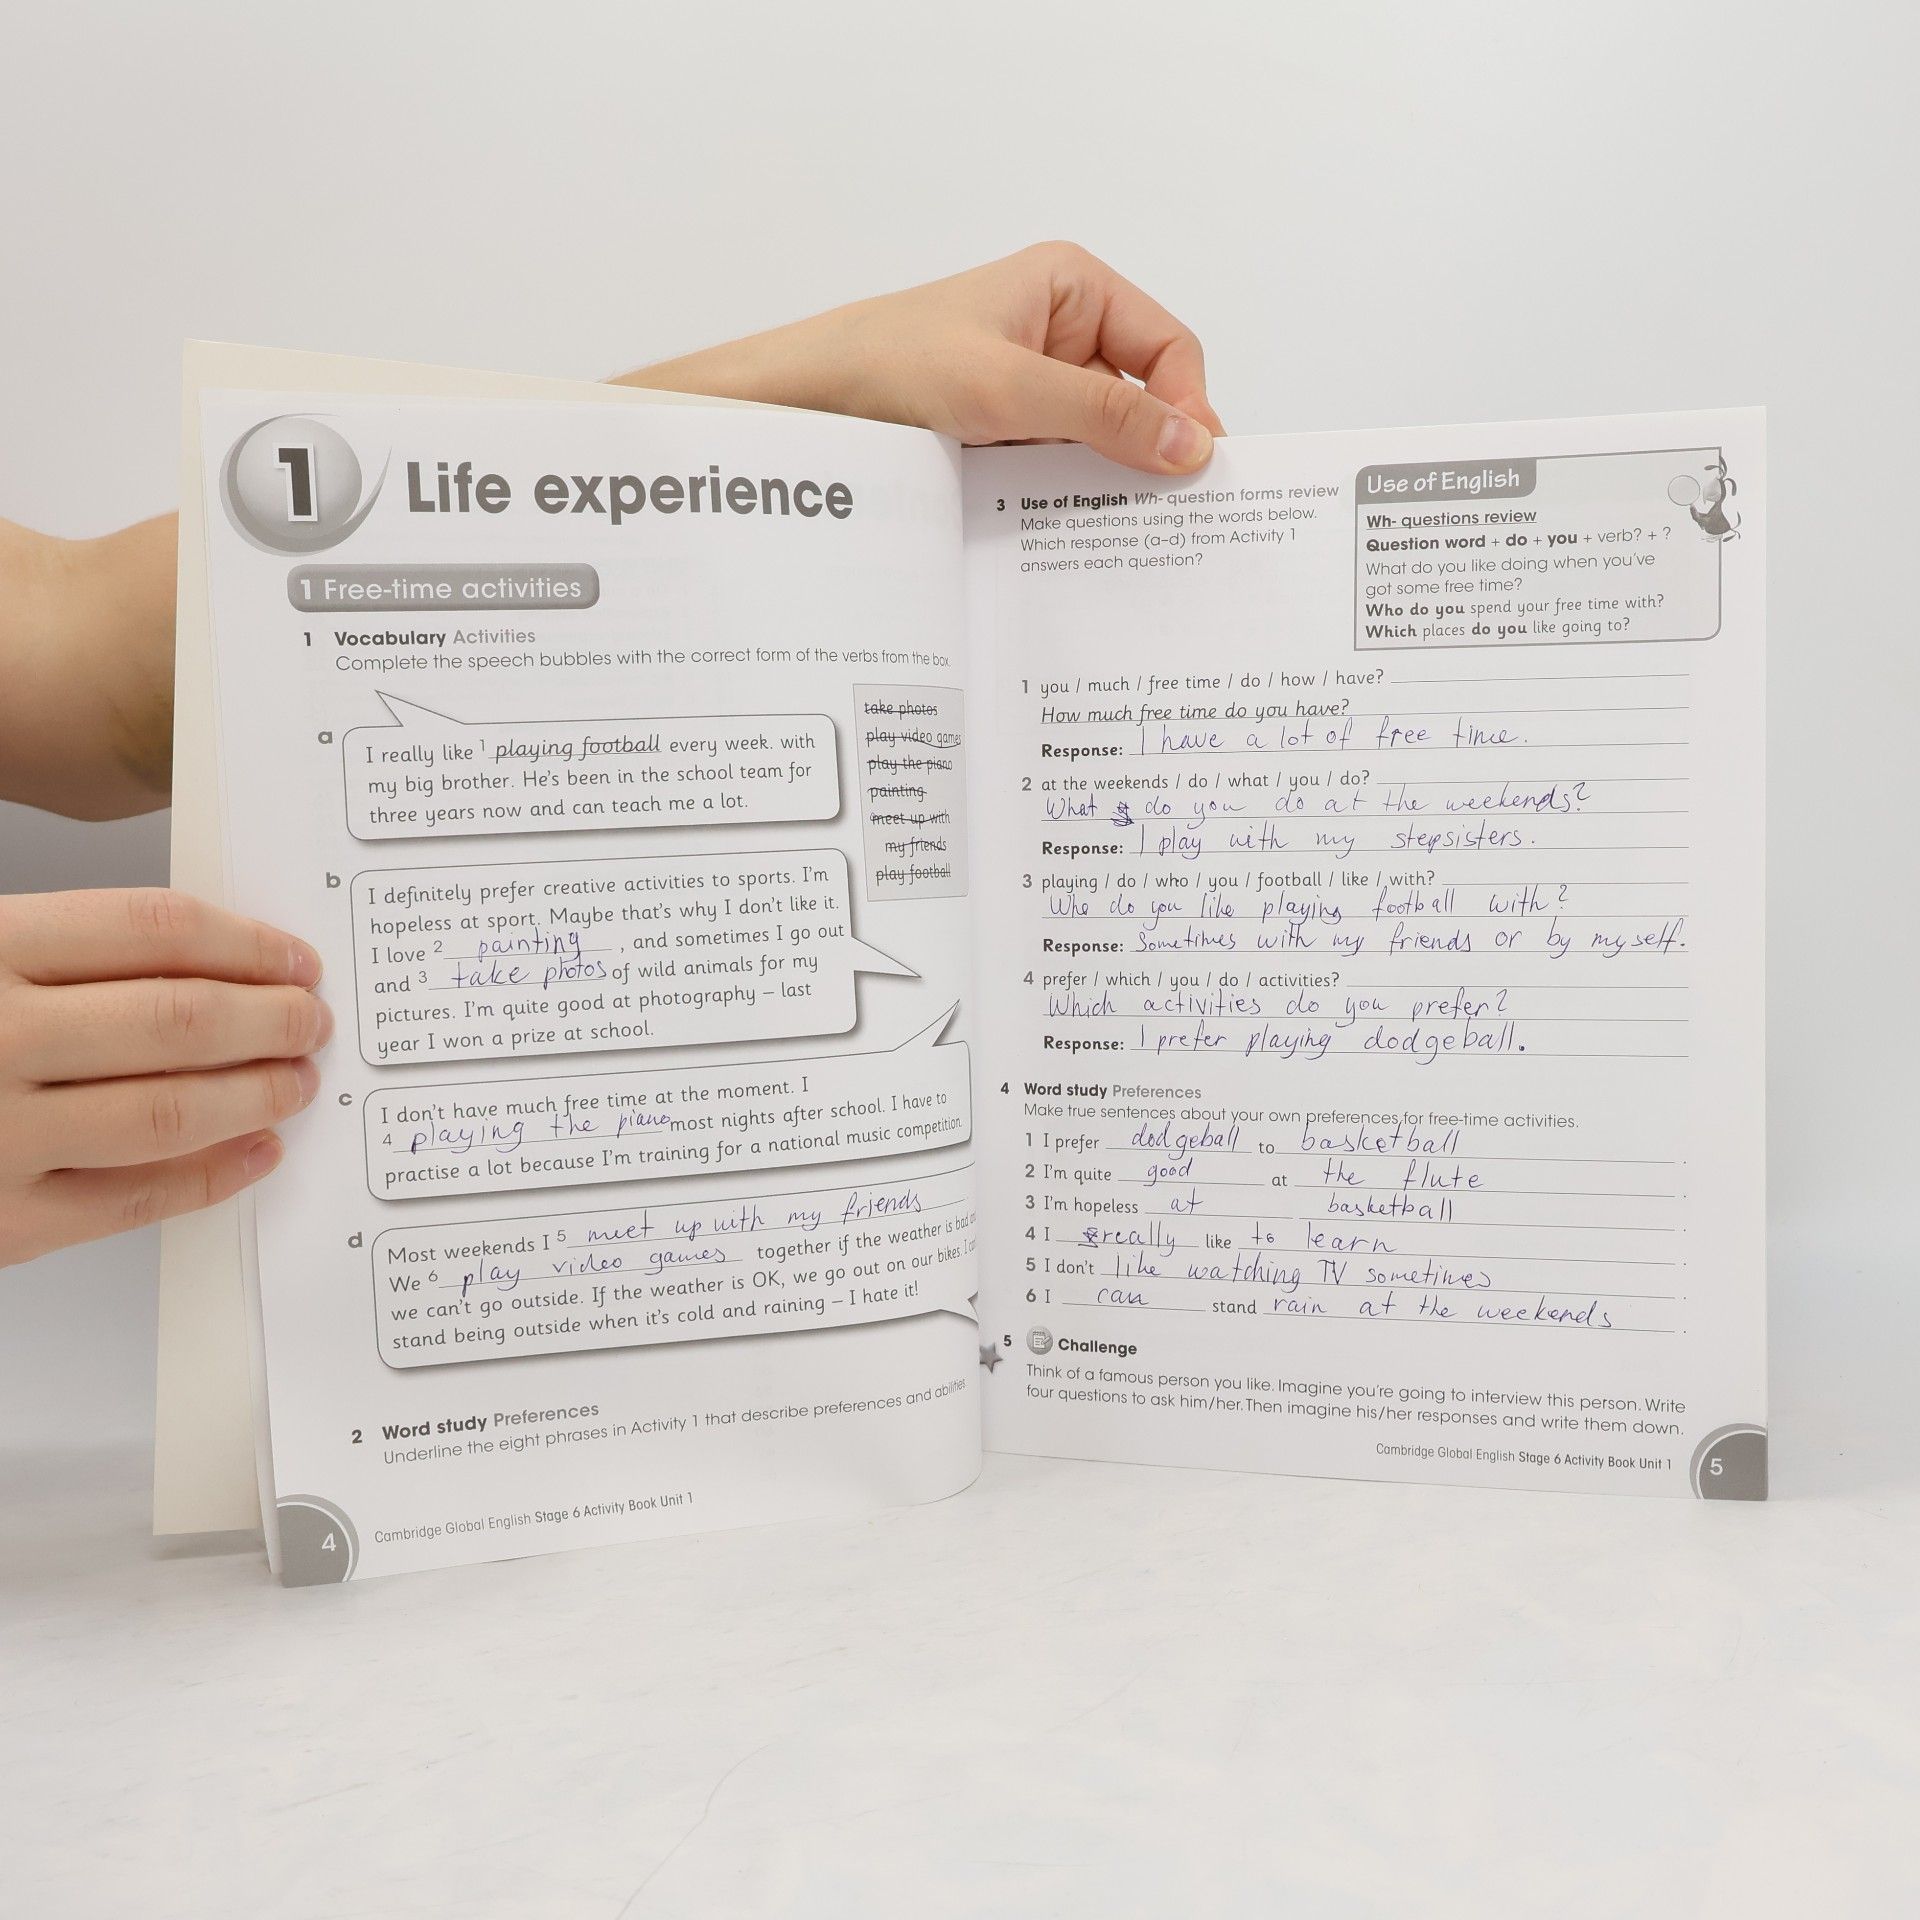 1 Life experience
1 Free-time activities
1 Vocabulary Activities
Complete the speech bubbles with the correct form of the verbs from the box.
take photos
play video games
play the piano
painting
meet up with
my friends
play football
a
I really like 1 playing football every week. with
my big brother. He's been in the school team for
three years now and can teach me a lot.
b
I definitely prefer creative activities to sports. I'm
hopeless at sport. Maybe that's why I don't like it.
I love 2 painting , and sometimes I go out
and 3 take photos of wild animals for my
pictures. I'm quite good at photography – last
year I won a prize at school.
c
I don't have much free time at the moment. I
4 playing the piano most nights after school. I have to
practise a lot because I'm training for a national music competition.
d
Most weekends I 5 meet up with my friends .
We 6 play video games together if the weather is bad
we can't go outside. If the weather is OK, we go out on our bikes. I
stand being outside when it's cold and raining – I hate it!
2 Word study Preferences
Underline the eight phrases in Activity 1 that describe preferences and abilities
4 Cambridge Global English Stage 6 Activity Book Unit 1
3 Use of English Wh- question forms review
Make questions using the words below.
Which response (a–d) from Activity 1
answers each question?
Use of English
Wh- questions review
Question word + do + you + verb? + ?
What do you like doing when you've
got some free time?
Who do you spend your free time with?
Which places do you like going to?
1 you / much / free time / do / how / have?
How much free time do you have?
Response: I have a lot of free time.
2 at the weekends / do / what / you / do?
What do you do at the weekends?
Response: I play with my stepsisters.
3 playing / do / who / you / football / like / with?
Who do you like playing football with?
Response: Sometimes with my friends or by myself.
4 prefer / which / you / do / activities?
Which activities do you prefer?
Response: I prefer playing dodgeball.
4 Word study Preferences
Make true sentences about your own preferences for free-time activities.
1 I prefer dodgeball to basketball .
2 I'm quite good at the flute .
3 I'm hopeless at basketball .
4 I really like to learn .
5 I don't like watching TV sometimes .
6 I can stand rain at the weekends .
5 Challenge
Think of a famous person you like. Imagine you're going to interview this person. Write
four questions to ask him/her. Then imagine his/her responses and write them down.
Cambridge Global English Stage 6 Activity Book Unit 1 5